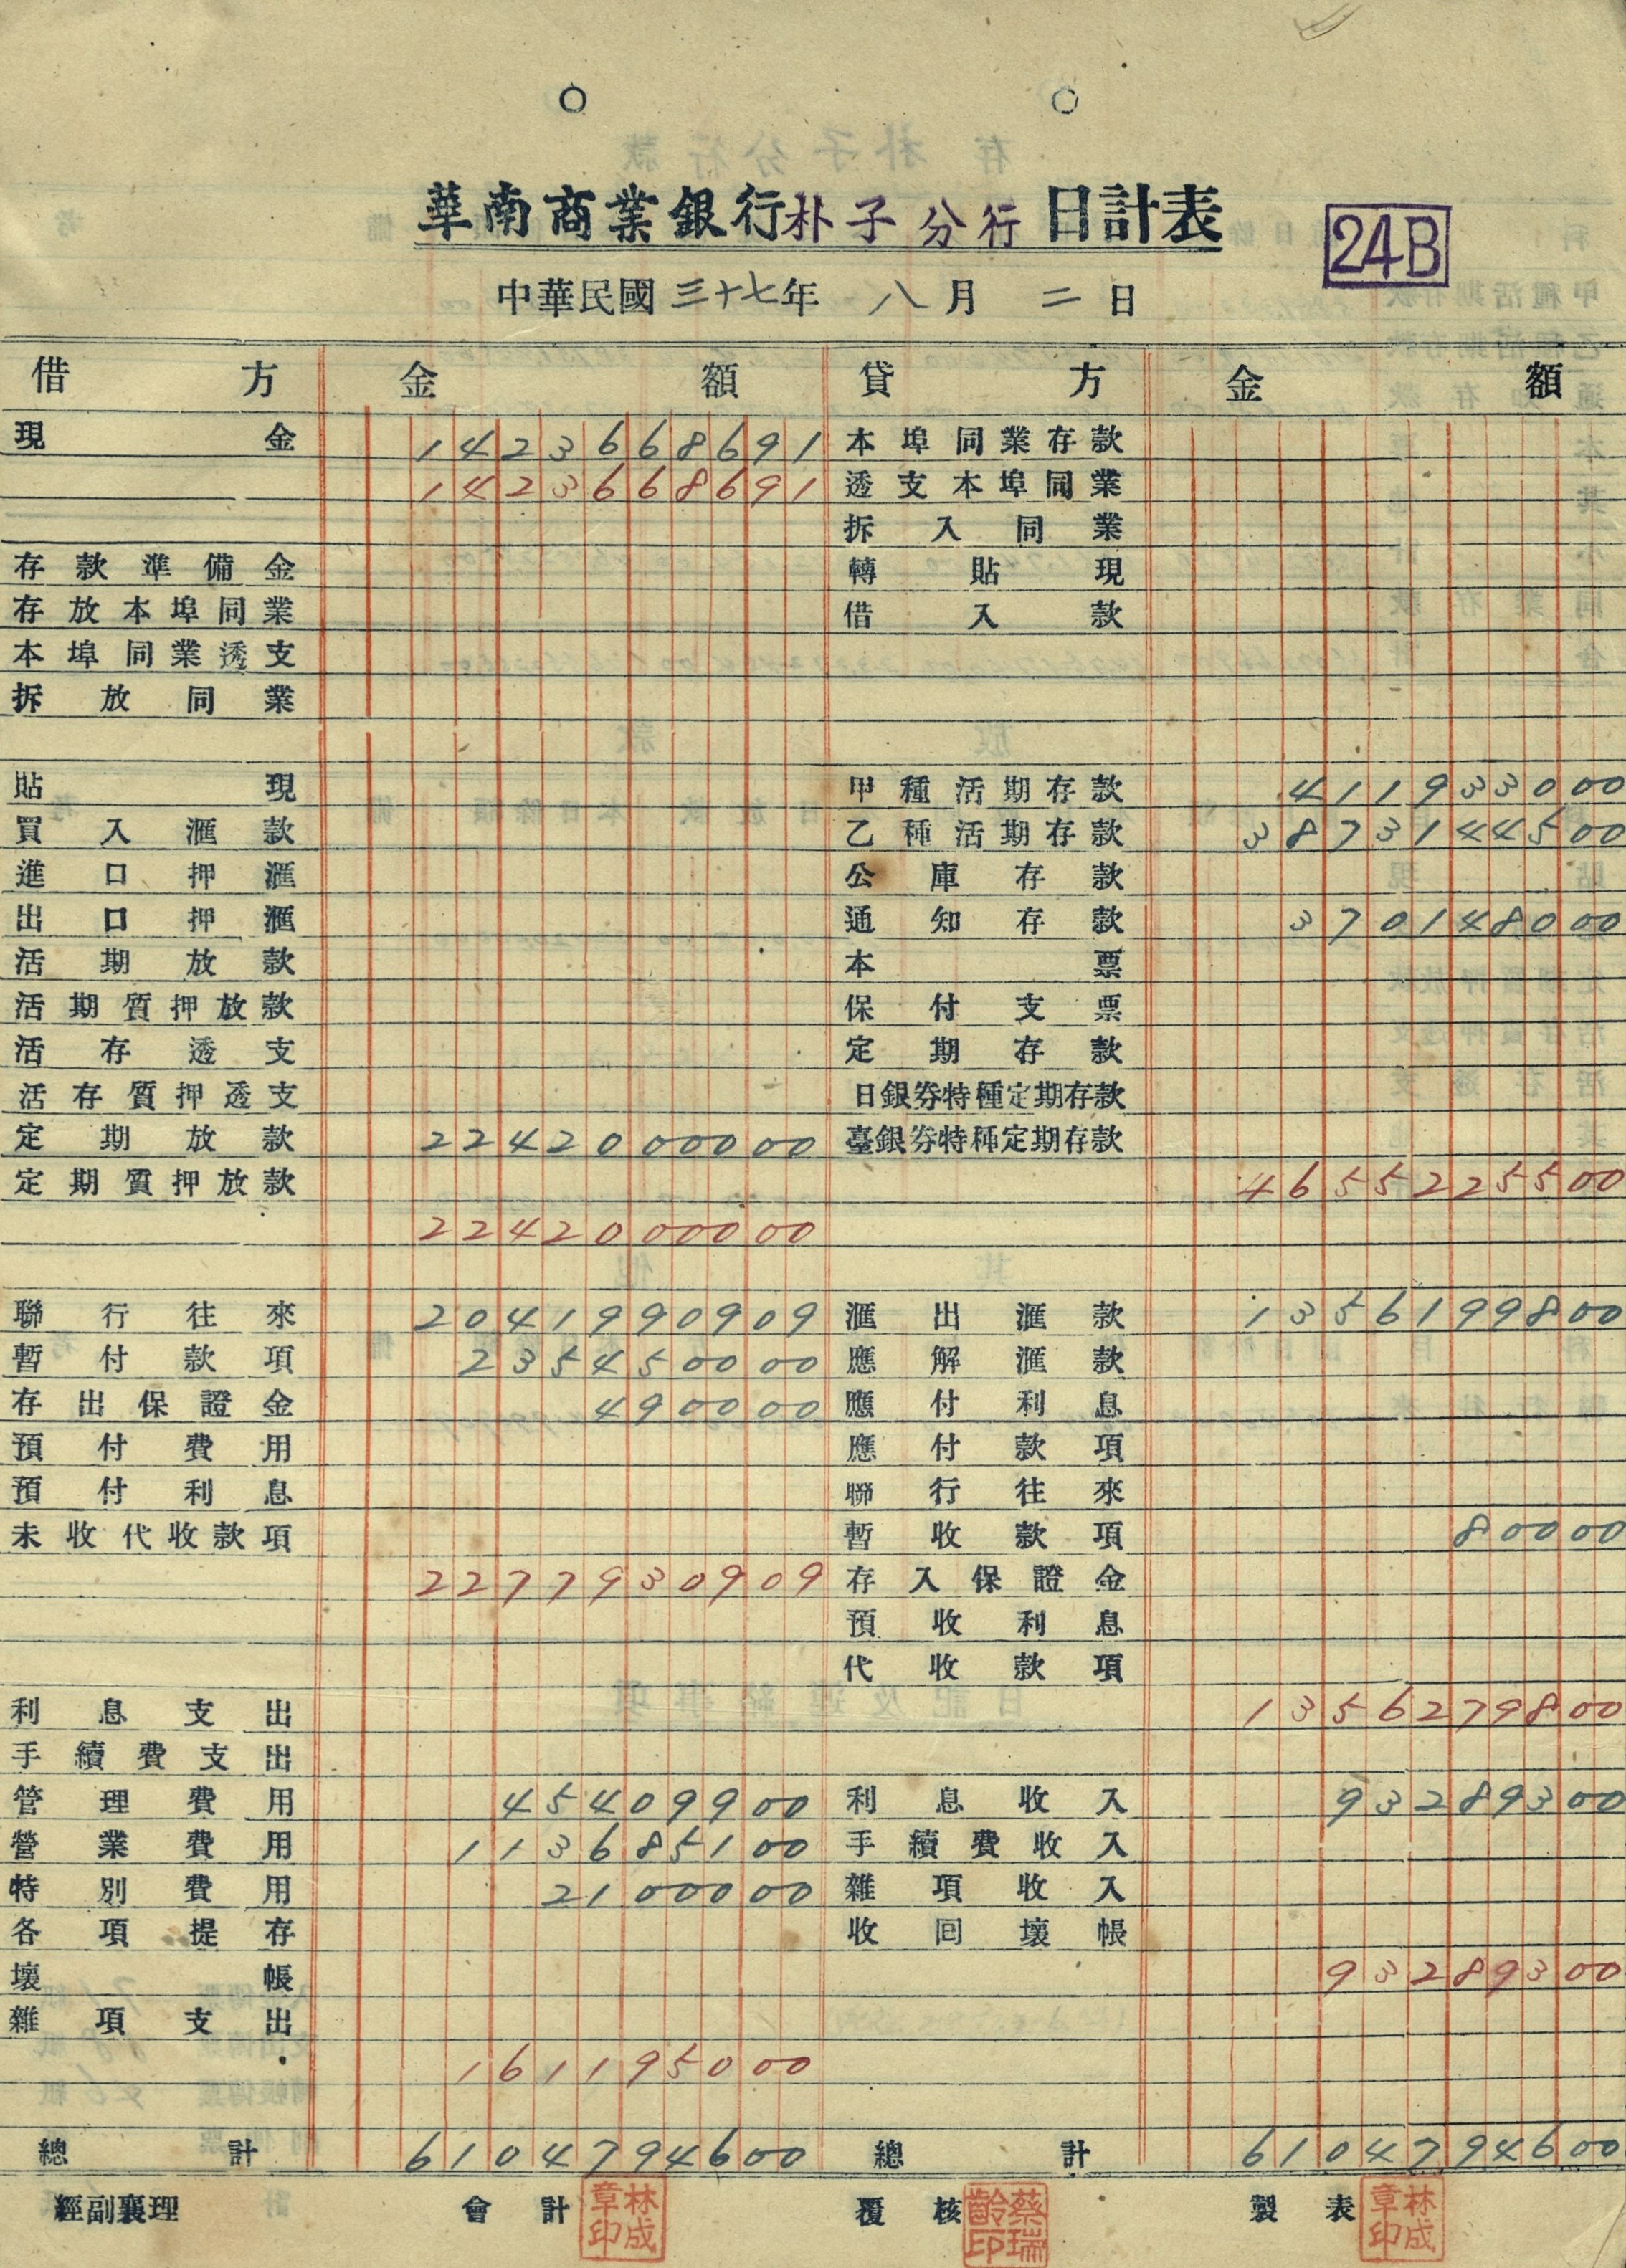 華南商業銀行朴子分行日計表
24B
中華民國三十七年 八月 二日
借方 金額 貸方 金額
現金 1423668691 本埠同業存款
1423668691 透支本埠同業
拆入同業
存款準備金 轉貼現
存放本埠同業 借入款
本埠同業透支
拆放同業
貼現 甲種活期存款 411933000
買入滙款 乙種活期存款 3873144500
進口押滙 公庫存款
出口押滙 通知存款 370148000
活期放款 本票
活期質押放款 保付支票
活存透支 定期存款
活存質押透支 日銀券特種定期存款
定期放款 2242000000 臺銀券特種定期存款
定期質押放款 4655225500
2242000000
聯行往來 2041990909 滙出滙款 1356199800
暫付款項 235450000 應解滙款
存出保證金 490000 應付利息
預付費用 應付款項
預付利息 聯行往來
未收代收款項 暫收款項 80000
2277930909 存入保證金
預收利息
代收款項
利息支出 1356279800
手續費支出
管理費用 45409900 利息收入 93289300
營業費用 113685100 手續費收入
特別費用 2100000 雜項收入
各項提存 收回壞帳
壞帳 93289300
雜項支出
161195000
總計 6104794600 總計 6104794600
經副襄理 會計 林成章印 覆核 蔡瑞齡印 製表 林成章印